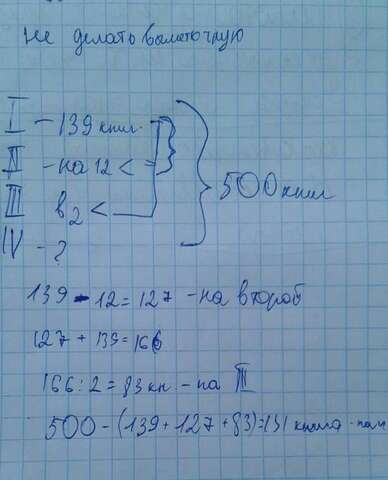 Не делать
I - 139 книг.
II - на 12 <
III в 2 <
500 книг
IV - ?
139 - 12 = 127 - на второй
127 + 139 = 166
166 : 2 = 83 кн. - на III
500 - (139 + 127 + 83) = 151 книга